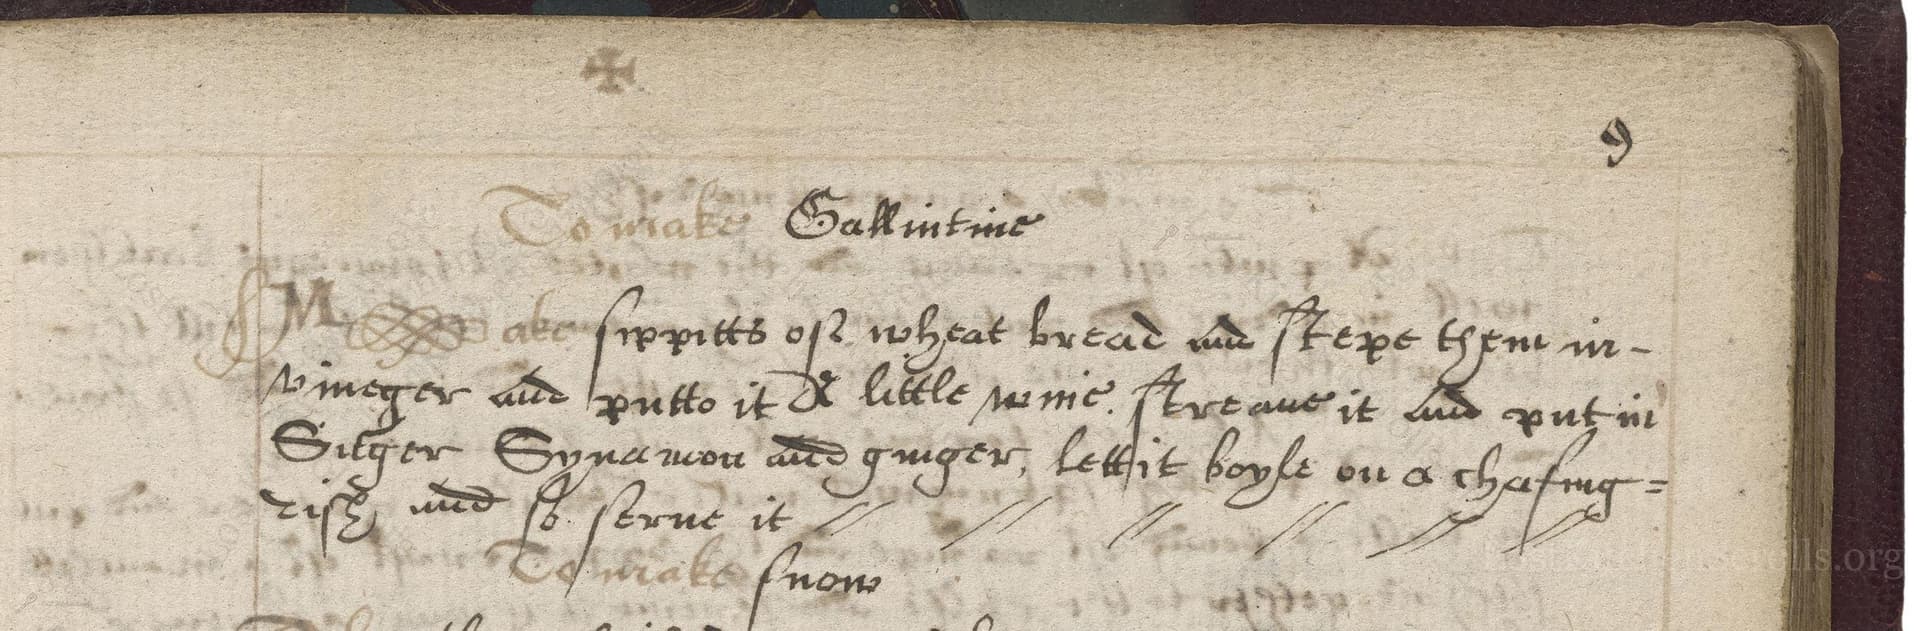 9
To make Gallintine
Make sippitts off wheat bread and stepe them in-
vineger and putto it A little wine. streane it and put in
Suger Synamon and ginger, lett it boyle on a chafing=
dish and so serve it
To make snow